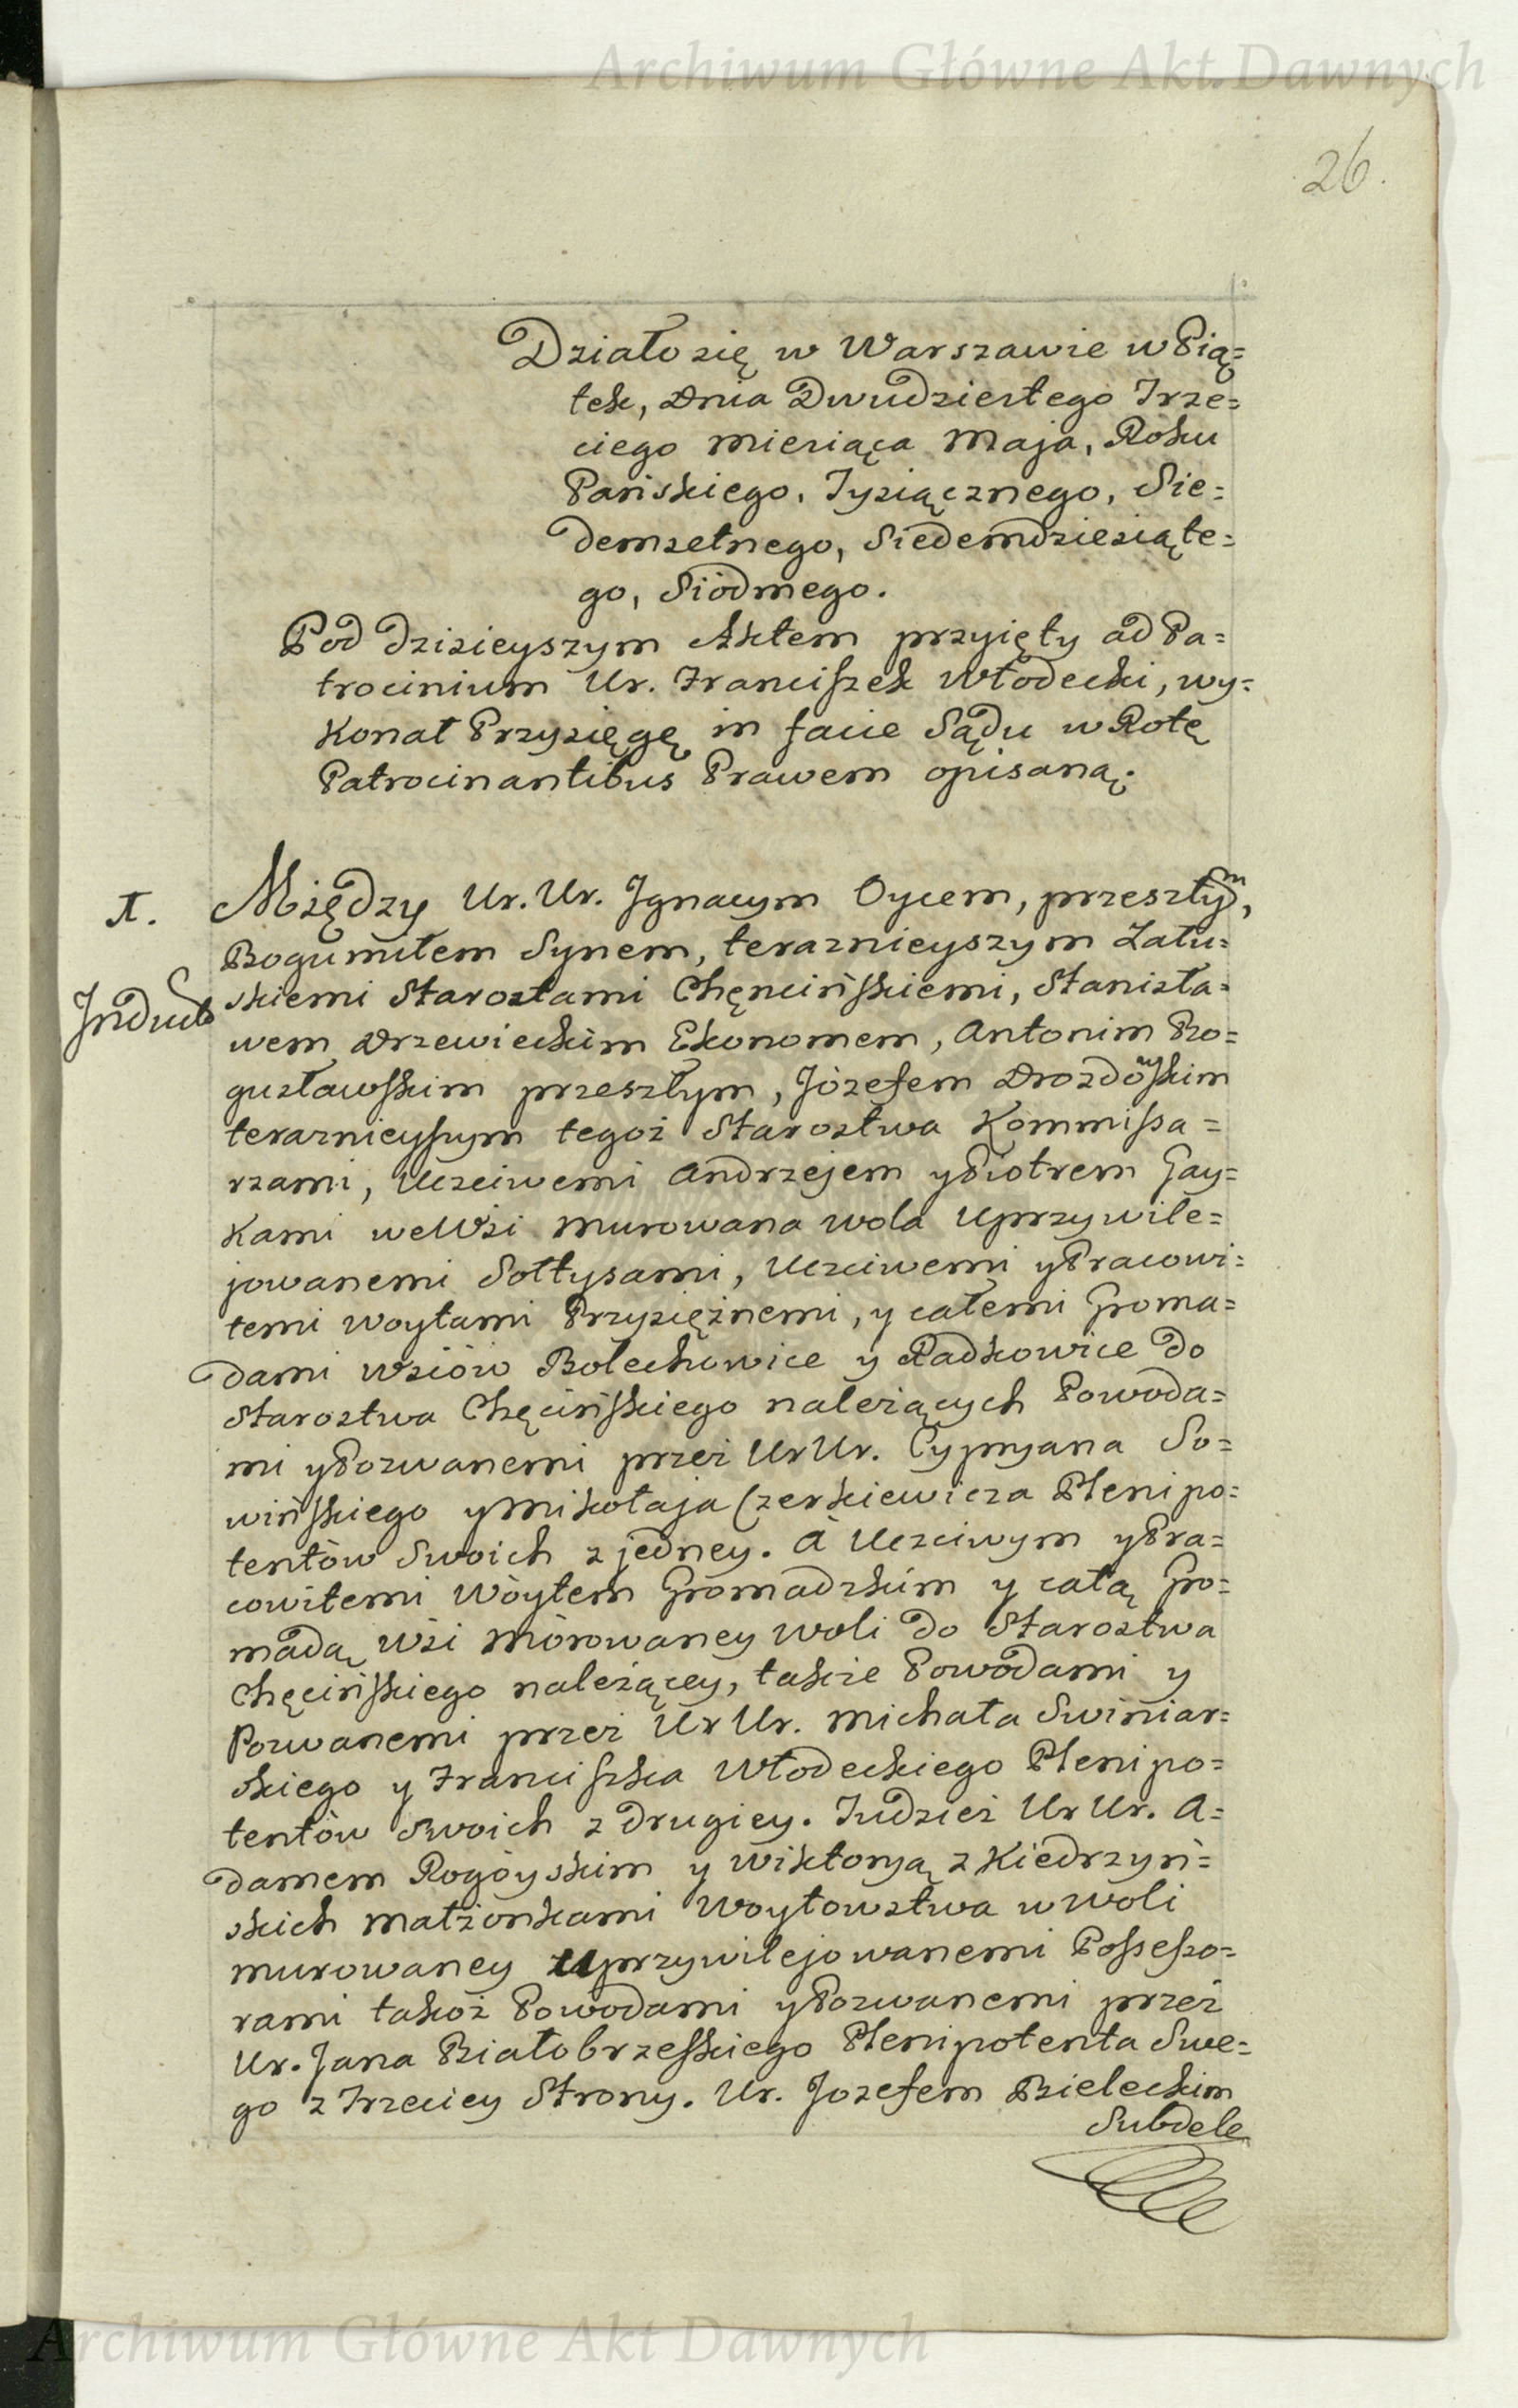 Archiwum Główne Akt Dawnych
26.
Działo się w Warszawie w Pią=
tek, Dnia Dwudziestego Trze=
ciego Miesiąca Maja, Roku
Pańskiego, Tysiącznego, Sie=
demsetnego, Siedemdziesiąte=
go, Siódmego.
Pod dzisieyszym Aktem przyięty ad Pa=
trocinium Ur. Franciszek Włodecki, wy=
konał Przysięgę in facie Sądu w Rotę
Patrocinantibus Prawem opisaną.
Między Ur. Ur. Ignacym Oycem, przeszłym,
Bogumiłem Synem, teraznieyszym Zału=
skiemi Starostami Chęncińskiemi, Stanisła=
wem Drzewieckim Ekonomem, Antonim Bo=
gusławskim przeszłym, Józefem Drozdowskim
teraznieyszym tegoż Starostwa Kommissa=
rzami, Uczciwemi Andrzejem y Piotrem Gay=
kami we Wsi Murowana Wola Uprzywile=
jowanemi Sołtysami, Uczciwemi y Pracowi=
temi Woytami Przysiężnemi, y całemi Groma=
dami Wsiów Bolechowice y Radkowice do
Starostwa Chęcińskiego należących Powoda=
mi y Pozwanemi przez Ur Ur. Cypryana So=
wińskiego y Mikołaja Czerkiewicza Plenipo=
tentów Swoich z jedney. A Uczciwym y Pra=
cowitemi Wóytem Gromadzkim y całą Gro=
madą Wsi Mórowaney Woli do Starostwa
Chęcińskiego należącey, także Powodami y
Pozwanemi przez Ur Ur. Michała Swiniar=
skiego y Franciszka Włodeckiego Plenipo=
tentów Swoich z drugiey. Tudzież Ur Ur. A=
damem Rogóyskim y Wiktoryą z Kiedrzyń=
skich Małżonkami Woytowstwa w Woli
murowaney Uprzywilejowanemi Possesso=
rami takoż Powodami y Pozwanemi przez
Ur. Jana Białobrzeskiego Plenipotenta Swe=
go z Trzeciey Strony. Ur. Jozefem Bieleckim
Subdele
Archiwum Główne Akt Dawnych